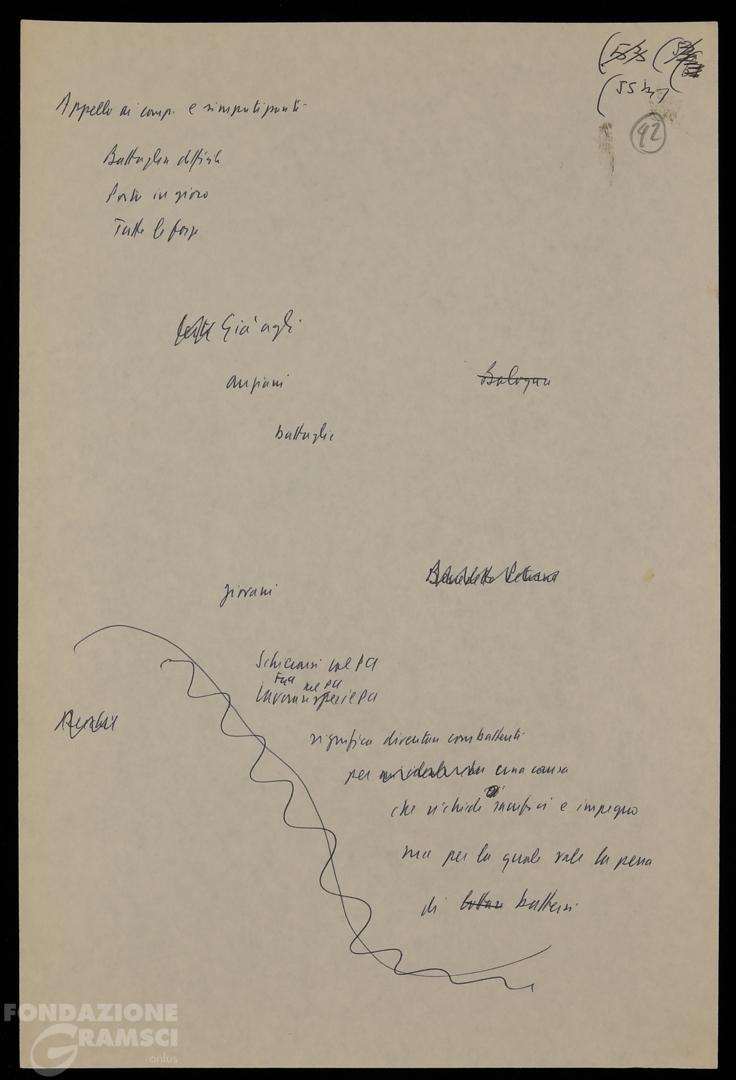 (535) (
(55 bis)
42
Appello ai comp. e simpatizzanti
Battaglia difficile
Posta in gioco
Tutte le forze
Già agli
anziani
Bologna
battaglie
giovani
Schierarsi col PCI
nel PCI
Lavorare per il PCI
significa diventare combattenti
per una causa
che richiede sacrifici e impegno
ma per la quale vale la pena
di lottare battersi
FONDAZIONE
GRAMSCI
onlus